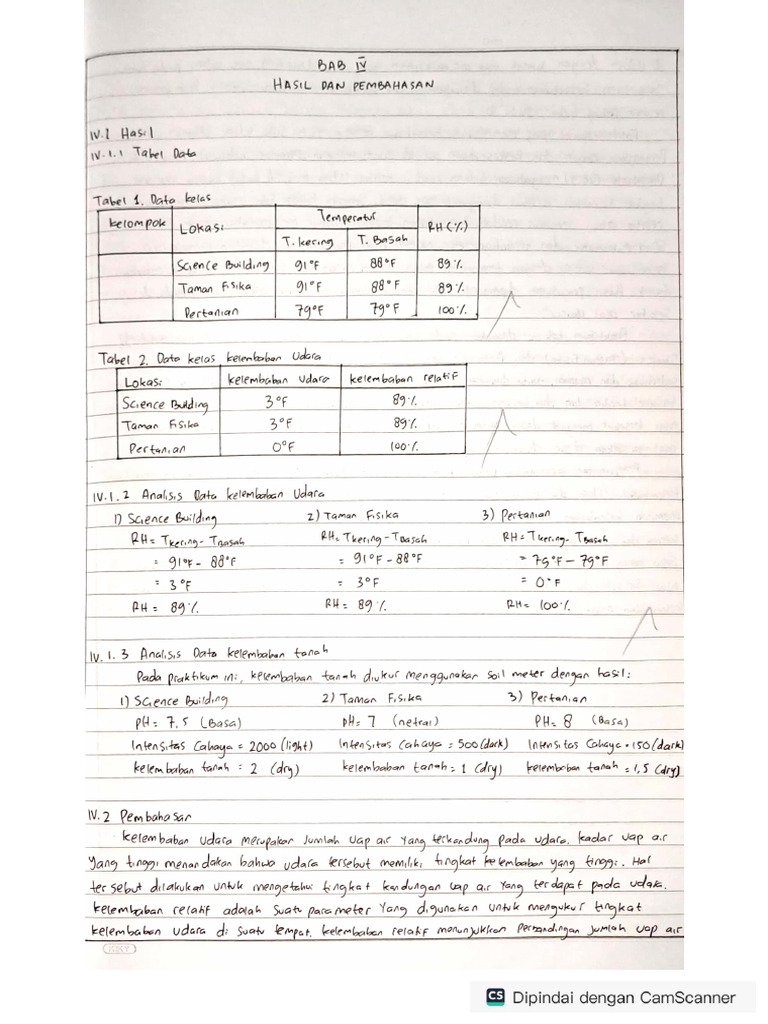 BAB IV
HASIL DAN PEMBAHASAN
IV.1 Hasil
IV.1.1 Tabel Data
Tabel 1. Data kelas
Kelompok Lokasi Temperatur RH (%)
T. kering T. Basah
Science Building 91°F 88°F 89%
Taman Fisika 91°F 88°F 89%
Pertanian 79°F 79°F 100%
Tabel 2. Data kelas kelembaban Udara
Lokasi kelembaban Udara kelembaban relatif
Science Building 3°F 89%
Taman Fisika 3°F 89%
Pertanian 0°F 100%
IV.1.2 Analisis Data kelembaban Udara
1) Science Building 2) Taman Fisika 3) Pertanian
RH = Tkering - TBasah RH = Tkering - TBasah RH = Tkering - TBasah
= 91°F - 88°F = 91°F - 88°F = 79°F - 79°F
= 3°F = 3°F = 0°F
RH = 89% RH = 89% RH = 100%
IV.1.3 Analisis Data kelembaban tanah
Pada praktikum ini, kelembaban tanah diukur menggunakan soil meter dengan hasil:
1) Science Building 2) Taman Fisika 3) Pertanian
PH = 7,5 (Basa) PH = 7 (netral) PH = 8 (Basa)
Intensitas Cahaya = 2000 (light) Intensitas Cahaya = 500 (dark) Intensitas Cahaya = 150 (dark)
kelembaban tanah = 2 (dry) kelembaban tanah = 1 (dry) kelembaban tanah = 1,5 (dry)
IV.2 Pembahasan
Kelembaban udara merupakan jumlah uap air yang terkandung pada udara. kadar uap air
yang tinggi menandakan bahwa udara tersebut memiliki tingkat kelembaban yang tinggi. Hal
tersebut dilakukan untuk mengetahui tingkat kandungan uap air yang terdapat pada udara.
kelembaban relatif adalah suatu parameter yang digunakan untuk mengukur tingkat
kelembaban udara di suatu tempat. kelembaban relatif menunjukkan perbandingan jumlah uap air
KKY
CS Dipindai dengan CamScanner